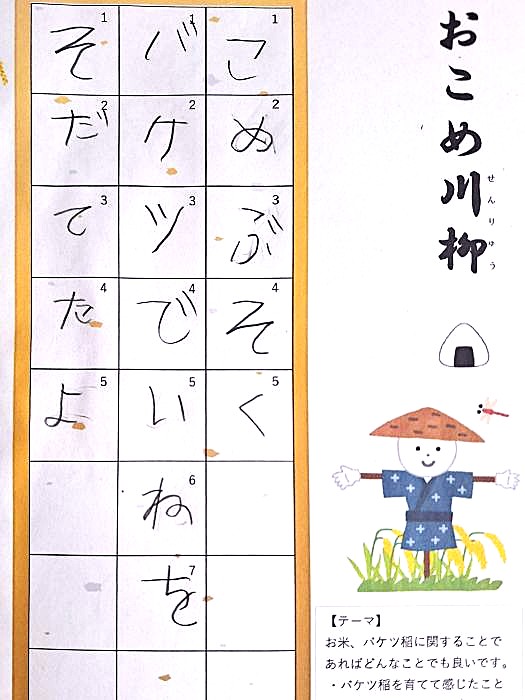 おこめ川柳
せんりゅう
こめぶそく
バケツでいねを
そだてたよ
1
2
3
4
5
1
2
3
4
5
6
7
1
2
3
4
5
【テーマ】
お米、バケツ稲に関することで
あればどんなことでも良いです。
・バケツ稲を育てて感じたこと